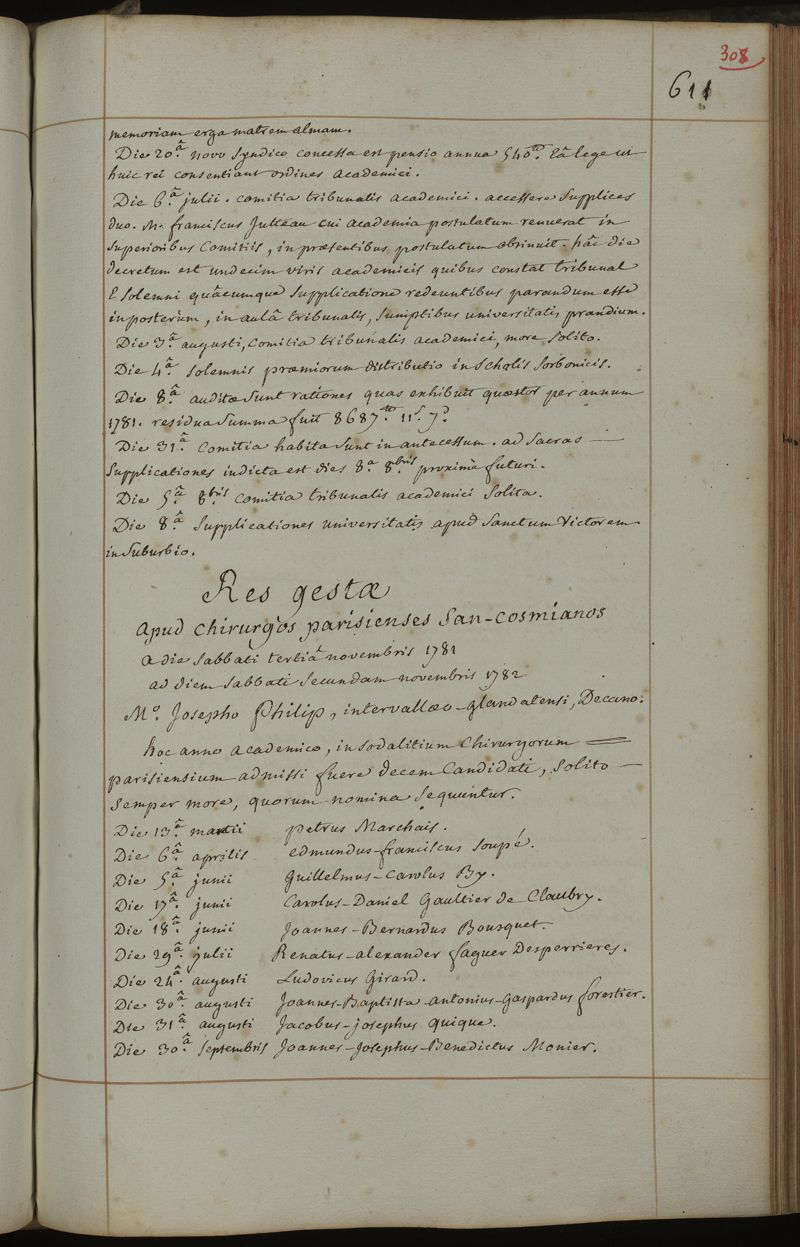 308
611
memoriam erga matrem almam.
Die 20.ª novo Syndico concessa est pensio annua 540.tt Eâ lege ut
huic rei consentiant ordines academici.
Die 6.ª julii. comitia tribunalis academici. accessere Supplices
duo. M. franciscus Jutteau cui academia postulatum renuerat in
Superioribus Comitiis, in præsentibus postulatum obtinuit. hâc die
decretum est undecim viris academicis quibus constat tribunal
E Solemni quâcumque Supplicatione redeuntibus parandum esse
inposterum, in aulâ tribunalis, Sumptibus universitatis prandium.
Die 3.ª augusti, comitia tribunalis academici, more Solito.
Die 4.ª Solemnis præmiorum distributio in Scholis Sorbonicis.
Die 8.ª auditæ Sunt rationes quas exhibuit quæstor per annum
1781. residua Summa fuit 8687.tt 11.s 7.d
Die 31.ª Comitia habita Sunt in antecessum. ad Sacras
Supplicationes indicta est dies 8.ª 8.bris proximè futuri.
Die 5.ª 8.bris comitia tribunalis academici Solita.
Die 8.ª Supplicationes universitatis apud Sanctum Victorem
in Suburbio.
Res gestæ
apud chirurgos parisienses San-cosmianos
a die Sabbati tertiâ novembris 1781
ad diem Sabbati Secundam novembris 1782
M.º Josepho Philip, intervallæo-glandatensi, Decano.
hoc anno academico, in Sodalitium Chirurgorum
parisiensium admissi fuere decem Candidati, Solito
Semper more, quorum nomina Sequuntur.
Die 13.ª martii petrus Marchais.
Die 6.ª aprilis edmundus-franciscus Soupé.
Die 5.ª junii guillelmus-carolus By.
Die 17.ª junii Carolus-Daniel Gaultier de Claubry.
Die 18.ª junii Joannes-Bernardus Bousquet.
Die 29.ª julii Renatus-alexander faguer Desperrieres.
Die 24.ª augusti Ludovicus Girard.
Die 30.ª augusti Joannes-Baptista-antonius-gaspardus forestier.
Die 31.ª augusti Jacobus-josephus quique.
Die 30.ª Septembris Joannes-Josephus-Benedictus Monier.